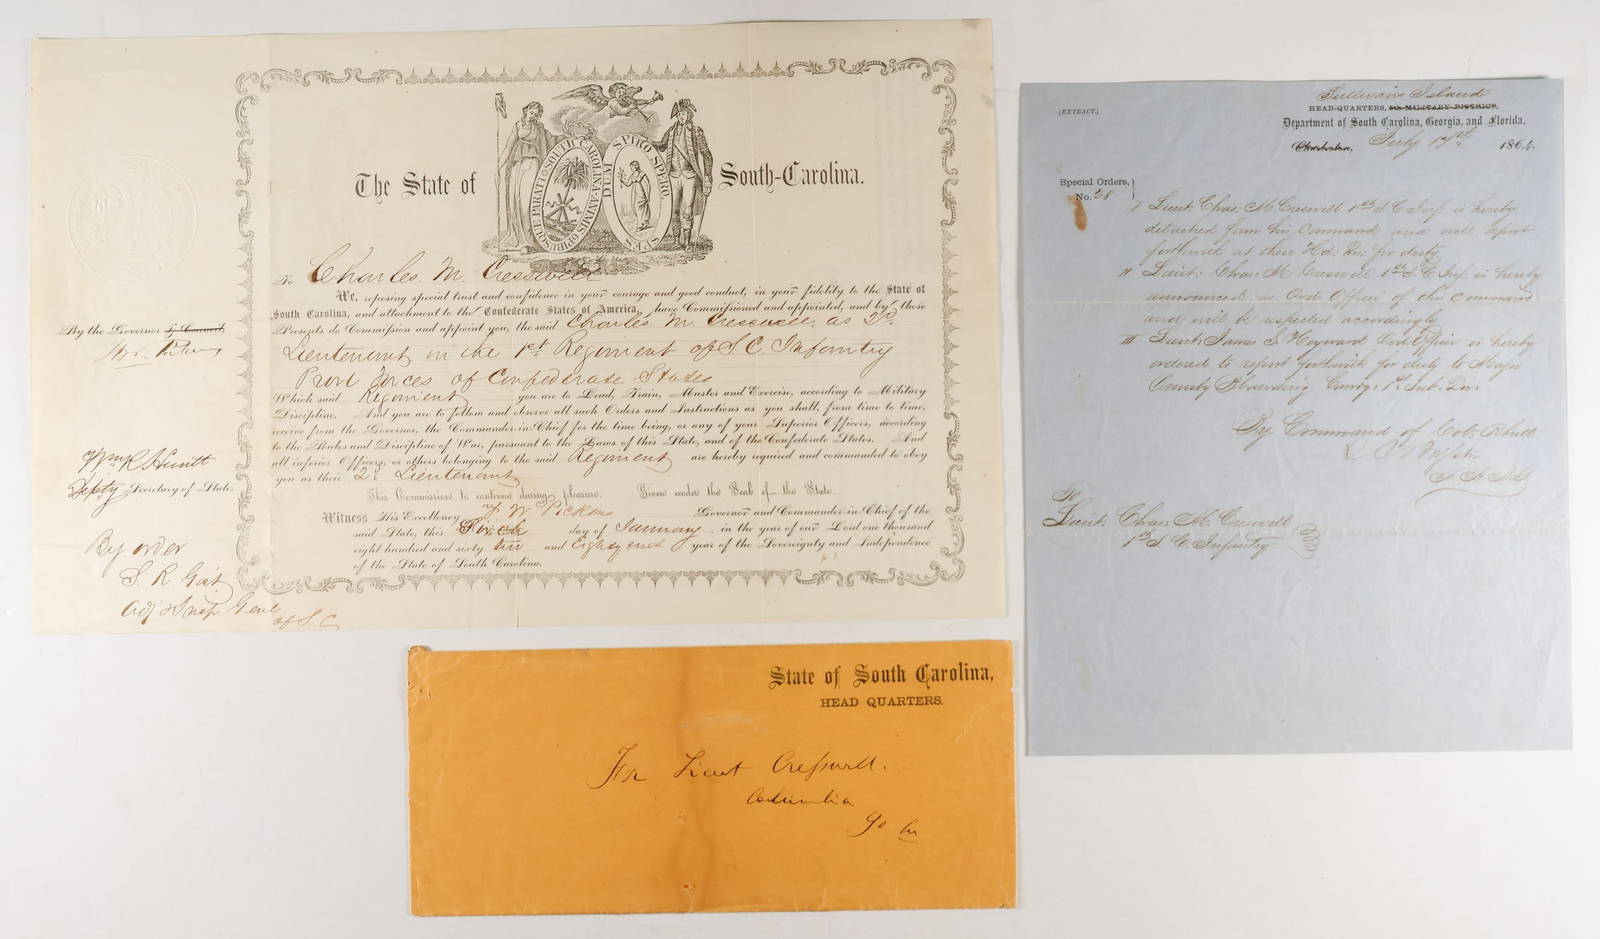 The State of South-Carolina.
ANIMIS OPIBUSQUE PARATI SOUTH CAROLINA
DUM SPIRO SPERO SPES
To Charles. M. Cresswell
We, reposing special trust and confidence in your courage and good conduct, in your fidelity to the State of
South Carolina, and attachment to the Confederate States of America, have Commissioned and appointed, and by these
Presents do Commission and appoint you, the said Charles. M. Cresswell. as 2d.
Lieutenant in the 1st Regiment of S. C. Infantry
Provl Forces of Confederate States
Which said Regiment you are to Lead, Train, Muster and Exercise, according to Military
Discipline. And you are to follow and observe all such Orders and Instructions as you shall, from time to time,
receive from the Governor, the Commander-in-Chief for the time being, or any of your Superior Officers, according
to the Rules and Discipline of War, pursuant to the Laws of this State, and of the Confederate States. And
all inferior Officers, or others belonging to the said Regiment are hereby required and commanded to obey
you as their 2d. Lieutenant
This Commission to continue during pleasure. Given under the Seal of the State.
Witness His Excellency F W Pickens Governor and Commander-in-Chief of the
said State, this day of January in the year of our Lord one thousand
eight hundred and sixty two and Eighty sixth year of the Sovereignty and Independence
of the State of South Carolina.
By the Governor & Council,
Deputy Secretary of State.
By order
S R Gist
Adj & Insp Genl
of S. C
(EXTRACT.)
Sullivans Island
HEAD-QUARTERS, 5th MILITARY DISTRICT,
Department of South Carolina, Georgia, and Florida.
Charleston, July 17th 1864.
Special Orders,
No. 28
I Lieut: Chas: M Creswell 1st S. C Inf: is hereby
detached from his command and will report
forthwith at these Hd: Qu: for duty
II Lieut: Chas: M. Creswell 1st S. C Inf: is hereby
announced as Ord Officer of this command
and will be respected accordingly
III Lieut: James S. Heyward Ord Officer is hereby
ordered to report forthwith for duty to Major
Ormsby Blanding Comdg: 1st Sub. Div.
By Command of Col: Rhett
To
Lieut: Chas M. Creswell
1st S C. Infantry
State of South Carolina,
HEAD QUARTERS.
For Lieut Cresswell.
Columbia
So Ca